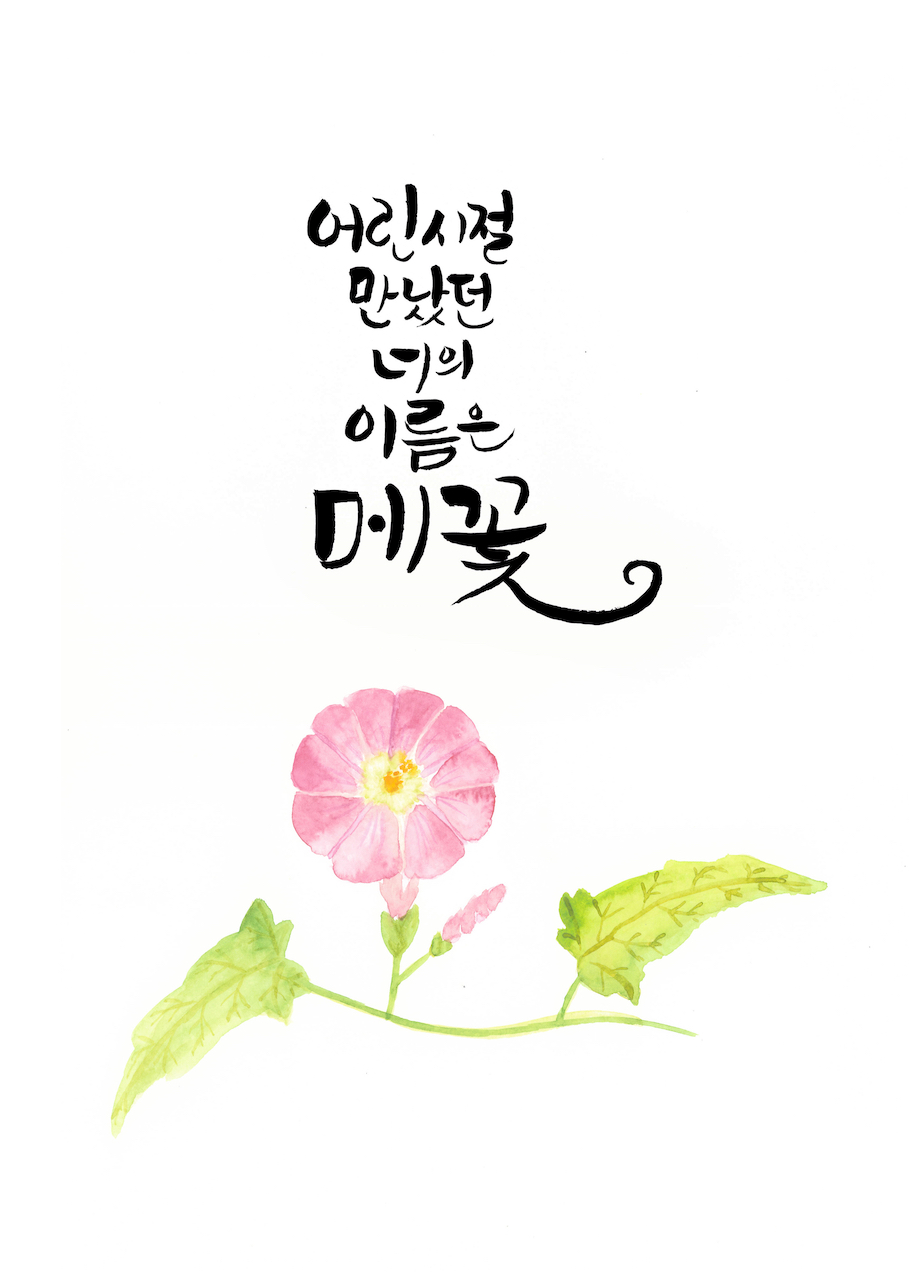 어린시절
만났던
너의
이름은
메꽃